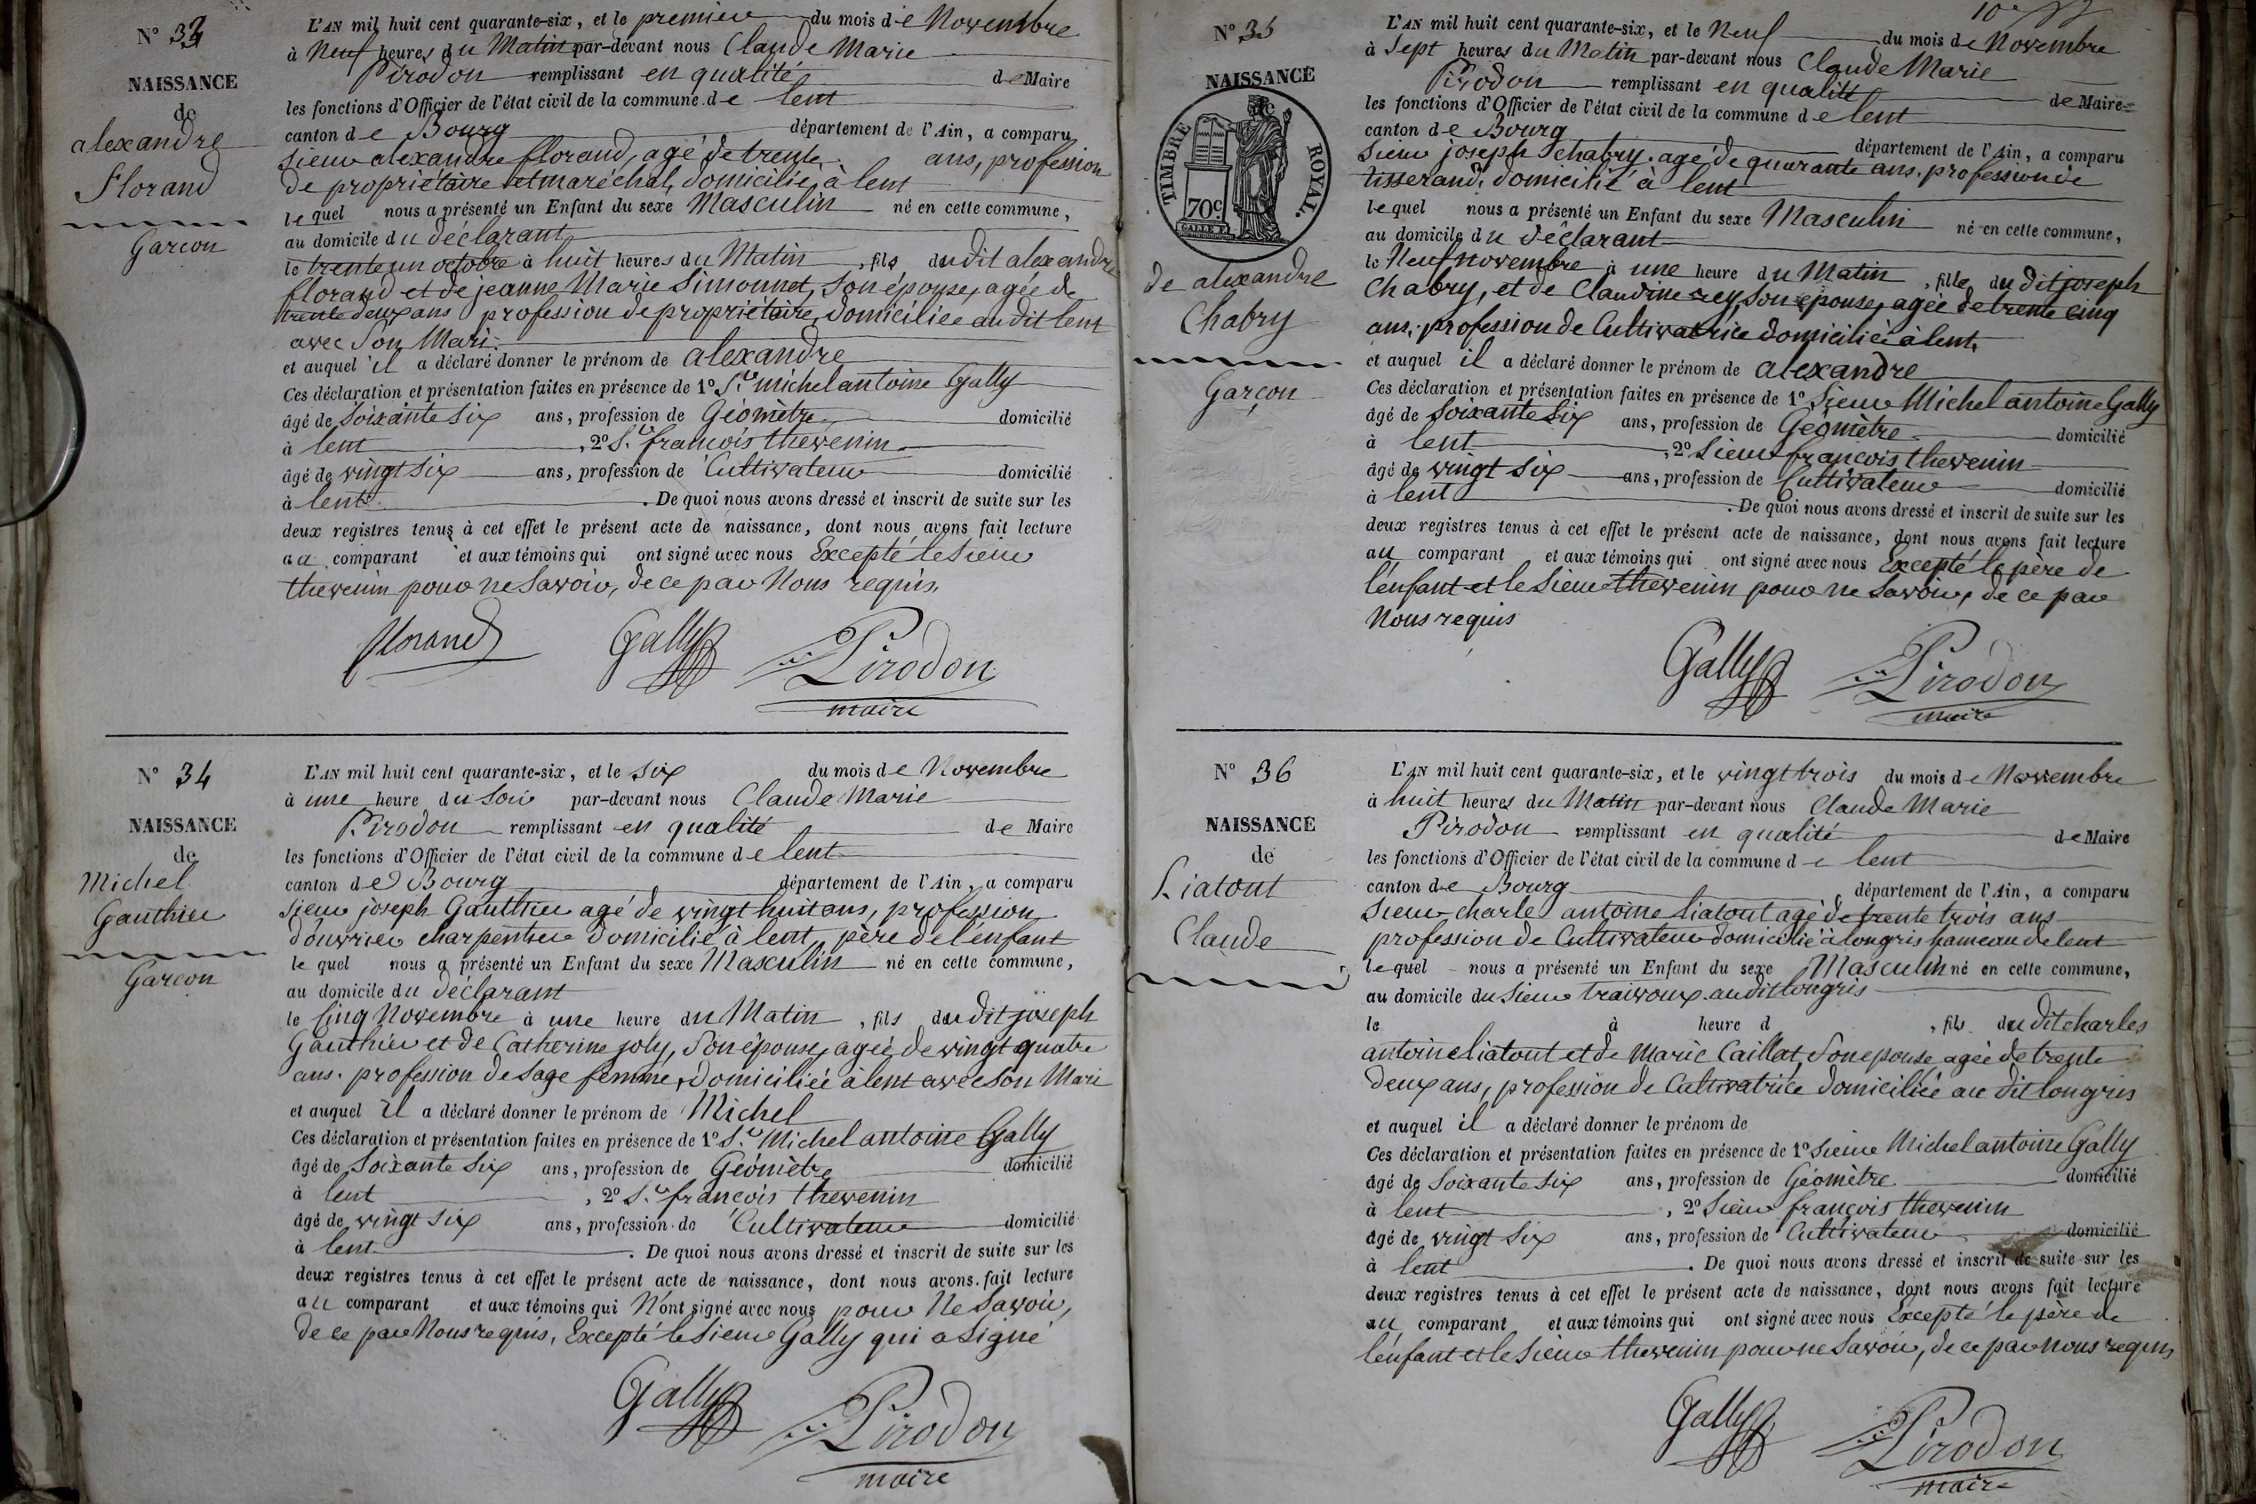 N° 33
NAISSANCE
de
alexandre
florand
Garcon
L'AN mil huit cent quarante-six, et le premier du mois de Novembre
à Neuf heures du Matin par-devant nous Claude Marie
Pirodon remplissant en qualité de Maire
les fonctions d'Officier de l'état civil de la commune de lent
canton de Bourg département de l'Ain, a comparu
Sieur alexandre florand, agé de trente ans, profession
de propriétaire et maréchal, domicilié à lent
lequel nous a présenté un Enfant du sexe Masculin né en cette commune,
au domicile du déclarant
le trente un octobre à huit heures du Matin, fils du dit alexandre
florand et de jeanne Marie Simonnet, Son épouse, agée de
trente deux ans profession de propriétaire, domiciliée audit lent
avec Son Mari.
et auquel il a déclaré donner le prénom de alexandre
Ces déclaration et présentation faites en présence de 1° S.r michel antoine Gally
âgé de Soixante Six ans, profession de Géomètre domicilié
à lent, 2° S.r francois thevenin
âgé de vingt Six ans, profession de Cultivateur domicilié
à lent. De quoi nous avons dressé et inscrit de suite sur les
deux registres tenus à cet effet le présent acte de naissance, dont nous avons fait lecture
au comparant et aux témoins qui ont signé avec nous Excepté le Sieur
thevenin pour ne Savoir, de ce par Nous requis.
florand Gally Pirodon
maire
N° 34
NAISSANCE
de
Michel
Gauthier
Garcon
L'AN mil huit cent quarante-six, et le Six du mois de Novembre
à une heure du Soir par-devant nous Claude Marie
Pirodon remplissant en qualité de Maire
les fonctions d'Officier de l'état civil de la commune de lent
canton de Bourg département de l'Ain, a comparu
Sieur joseph Gauthier agé de vingt huit ans, profession
d'ouvrier charpentier domicilié à lent, père de l'enfant
lequel nous a présenté un Enfant du sexe Masculin né en cette commune,
au domicile du déclarant
le Cinq Novembre à une heure du Matin, fils du dit joseph
Gauthier et de Catherine joly, Son épouse, agée de vingt quatre
ans. profession de Sage femme, domiciliée à lent avec Son Mari
et auquel il a déclaré donner le prénom de Michel
Ces déclaration et présentation faites en présence de 1° S.r Michel antoine Gally
âgé de Soixante Six ans, profession de Géomètre domicilié
à lent, 2° S.r francois thevenin
âgé de vingt Six ans, profession de Cultivateur domicilié
à lent. De quoi nous avons dressé et inscrit de suite sur les
deux registres tenus à cet effet le présent acte de naissance, dont nous avons fait lecture
au comparant et aux témoins qui N'ont signé avec nous pour Ne Savoir,
de ce par Nous requis, Excepté le Sieur Gally qui a Signé
Gally Pirodon
maire
N° 35
NAISSANCE
de
TIMBRE ROYAL.
70c
de alexandre
Chabry
Garçon
L'AN mil huit cent quarante-six, et le Neuf du mois de Novembre
à Sept heures du Matin par-devant nous Claude Marie
Pirodon remplissant en qualité de Maire
les fonctions d'Officier de l'état civil de la commune de lent
canton de Bourg département de l'Ain, a comparu
Sieur joseph chabry. agé de quarante ans. profession de
tisserand, domicilié à lent
lequel nous a présenté un Enfant du sexe Masculin né en cette commune,
au domicile du déclarant
le Neuf novembre à une heure du Matin, fille du dit joseph
Chabry, et de Claudine rey, Son épouse, agée de trente cinq
ans, profession de Cultivatrice domiciliée à lent,
et auquel il a déclaré donner le prénom de alexandre
Ces déclaration et présentation faites en présence de 1° Sieur Michel antoine Gally
âgé de Soixante Six ans, profession de Géomètre domicilié
à lent, 2° Sieur françois thevenin
âgé de vingt Six ans, profession de Cultivateur domicilié
à lent. De quoi nous avons dressé et inscrit de suite sur les
deux registres tenus à cet effet le présent acte de naissance, dont nous avons fait lecture
au comparant et aux témoins qui ont signé avec nous Excepté le père de
l'enfant et le Sieur thevenin pour ne Savoir, de ce par
Nous requis
Gally Pirodon
maire
N° 36
NAISSANCE
de
Liatout
Claude
L'AN mil huit cent quarante-six, et le vingt trois du mois de Novembre
à huit heures du Matin par-devant nous Claude Marie
Pirodon remplissant en qualité de Maire
les fonctions d'Officier de l'état civil de la commune de lent
canton de Bourg département de l'Ain, a comparu
Sieur charle antoine liatout agé de trente trois ans
profession de Cultivateur domicilié à longris hameau de lent
lequel nous a présenté un Enfant du sexe Masculin né en cette commune,
au domicile du Sieur traivoux audit longris
le à heure d, fils du dit charles
antoine liatout et de Marie Caillat, Son épouse, agée de trente
deux ans, profession de Cultivatrice domiciliée au dit longris
et auquel il a déclaré donner le prénom de
Ces déclaration et présentation faites en présence de 1° Sieur Michel antoine Gally
âgé de Soixante Six ans, profession de Géomètre domicilié
à lent, 2° Sieur françois thevenin
âgé de vingt Six ans, profession de Cultivateur domicilié
à lent. De quoi nous avons dressé et inscrit de suite sur les
deux registres tenus à cet effet le présent acte de naissance, dont nous avons fait lecture
au comparant et aux témoins qui ont signé avec nous Excepté le père de
l'enfant et le Sieur thevenin pour ne Savoir, de ce par nous requis
Gally Pirodon
maire